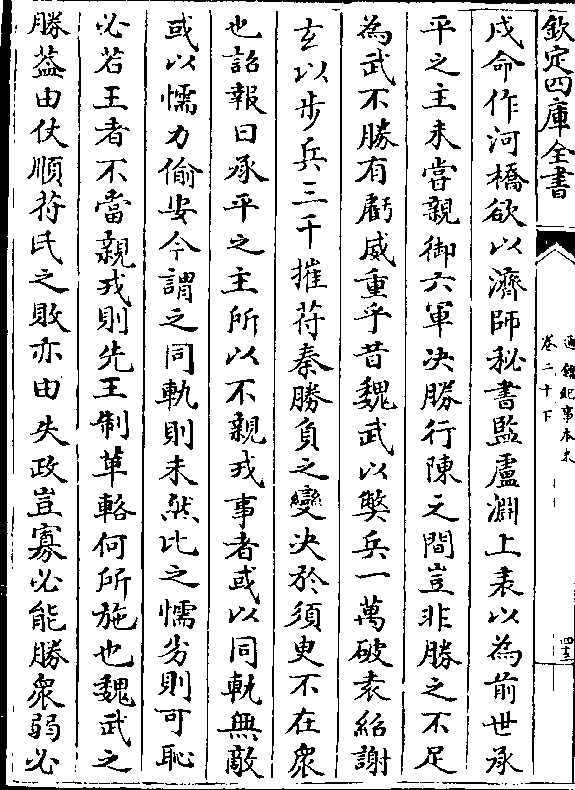 欽定四庫全書
通鑑紀事本末
卷二十下
四十三
戍命作河橋欲以濟師秘書監盧淵上表以為前世承
平之主未嘗親御六軍决勝行陳之間豈非勝之不足
為武不勝有虧威重乎昔魏武以弊兵一萬破袁紹謝
玄以步兵三千摧苻秦勝負之變决於須臾不在衆
也詔報曰承平之主所以不親戎事者或以同軌無敵
或以懦力偷安今謂之同軌則未然比之懦劣則可恥
必若王者不當親戎則先王制革輅何所施也魏武之
勝葢由仗順苻氏之敗亦由失政豈寡必能勝衆弱必